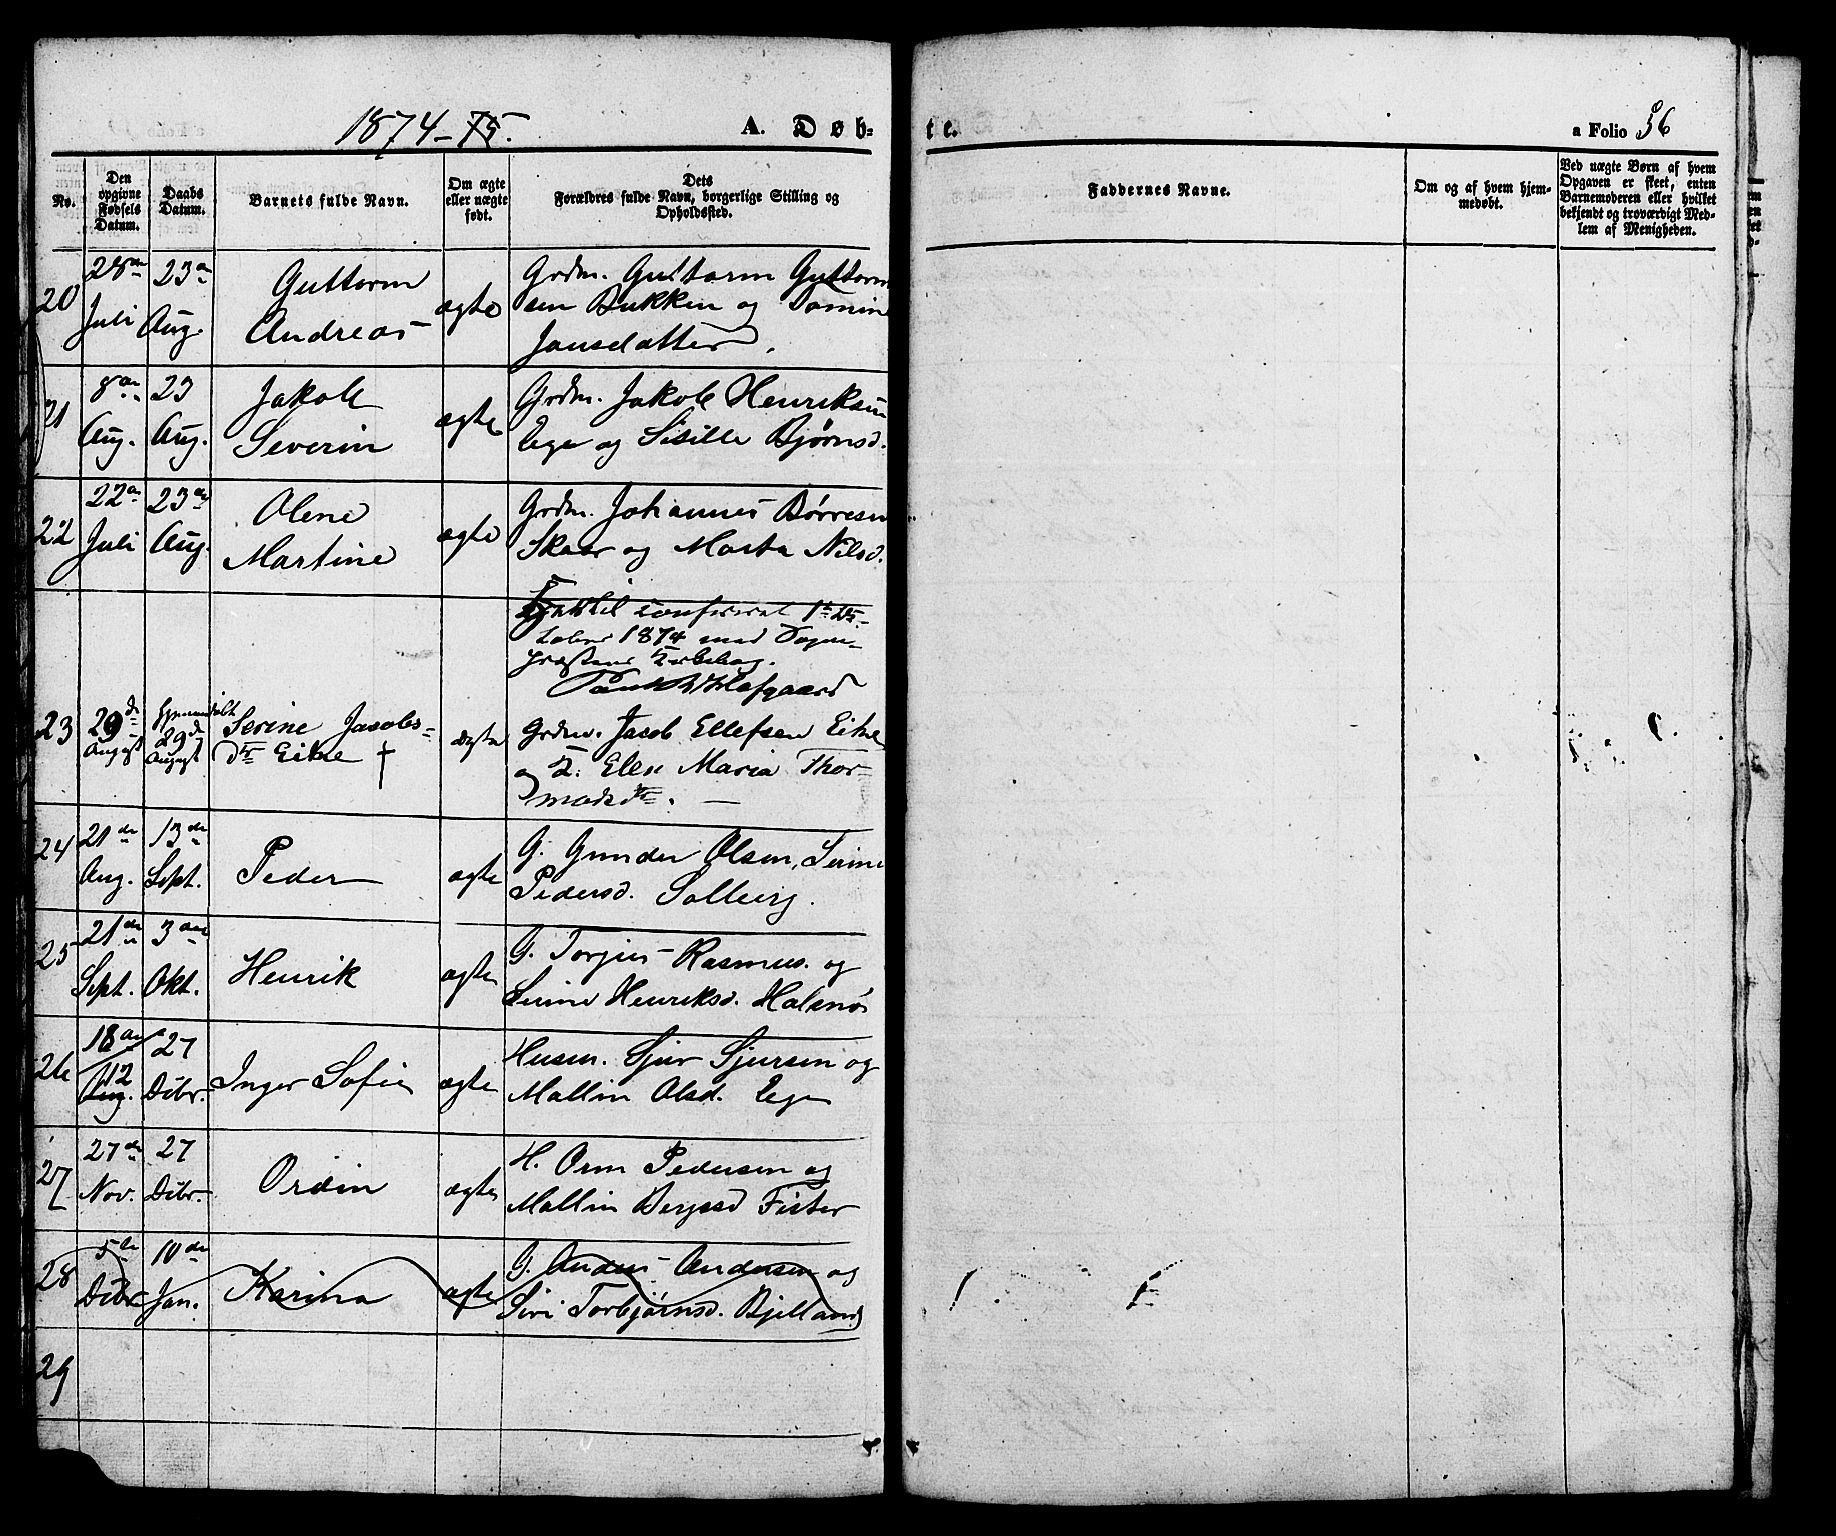 1874-75.
A. Døb-
te.
a Folio 56
No.
Den opgivne Fødsels Datum.
Daabs Datum.
Barnets fulde Navn.
Om ægte eller uægte født.
Dets Forældres fulde Navn, borgerlige Stilling og Opholdssted.
Faddernes Navne.
Om og af hvem hjemmedøbt.
Ved uægte Børn af hvem Opgaven er skeet, enten Barnemoderen eller hvilket bekjendt og troværdigt Medlem af Menigheden.
20 28de Juli 23de Aug. Guttorm Andreas ægte Grdm. Guttorm Guttorm
sen Bukken og Tomin
Jansdatter.
21 8de Aug. 23 Aug. Jakob Severin ægte Grdm. Jakob Henriksen
Ege og Sisille Bjørnsd.
22 22de Juli 23de Aug. Olene Martine ægte Grdm. Johannes Børresen
Skaar og Marta Nilsd.
confereret 1ste Ok-
tober 1874 med Sogne-
præstens
Hofgaard
23 29de August Hjemmedøbt 29de August Serine Jacobs-
dtr Eike † ægte Grdm. Jacob Ellefsen Eike
og H. Elen Maria Thor-
modsdtr. —
24 21de Aug. 13de Sept. Peder ægte G. Gunder Olsen, Serine
Pedersd. Solberg.
25 21de Sept. 3die Okt. Henrik ægte G. Torjus Rasmus. og
Serine Henriksd. Halsnø
26 18de/12 Aug. 27 Dcbr. Inger Sofie ægte Husm. Sjur Sjursen og
Mallin Olsd. Ege
27 27de Nov. 27 Dcbr. Ordin ægte H. Orm Pedersen og
Mallin Bergsd Fister
28 5te Dcbr 10de Jan. Karina ægte G. Anders Andersen og
Siri Torbjørnsd. Bjelland
29